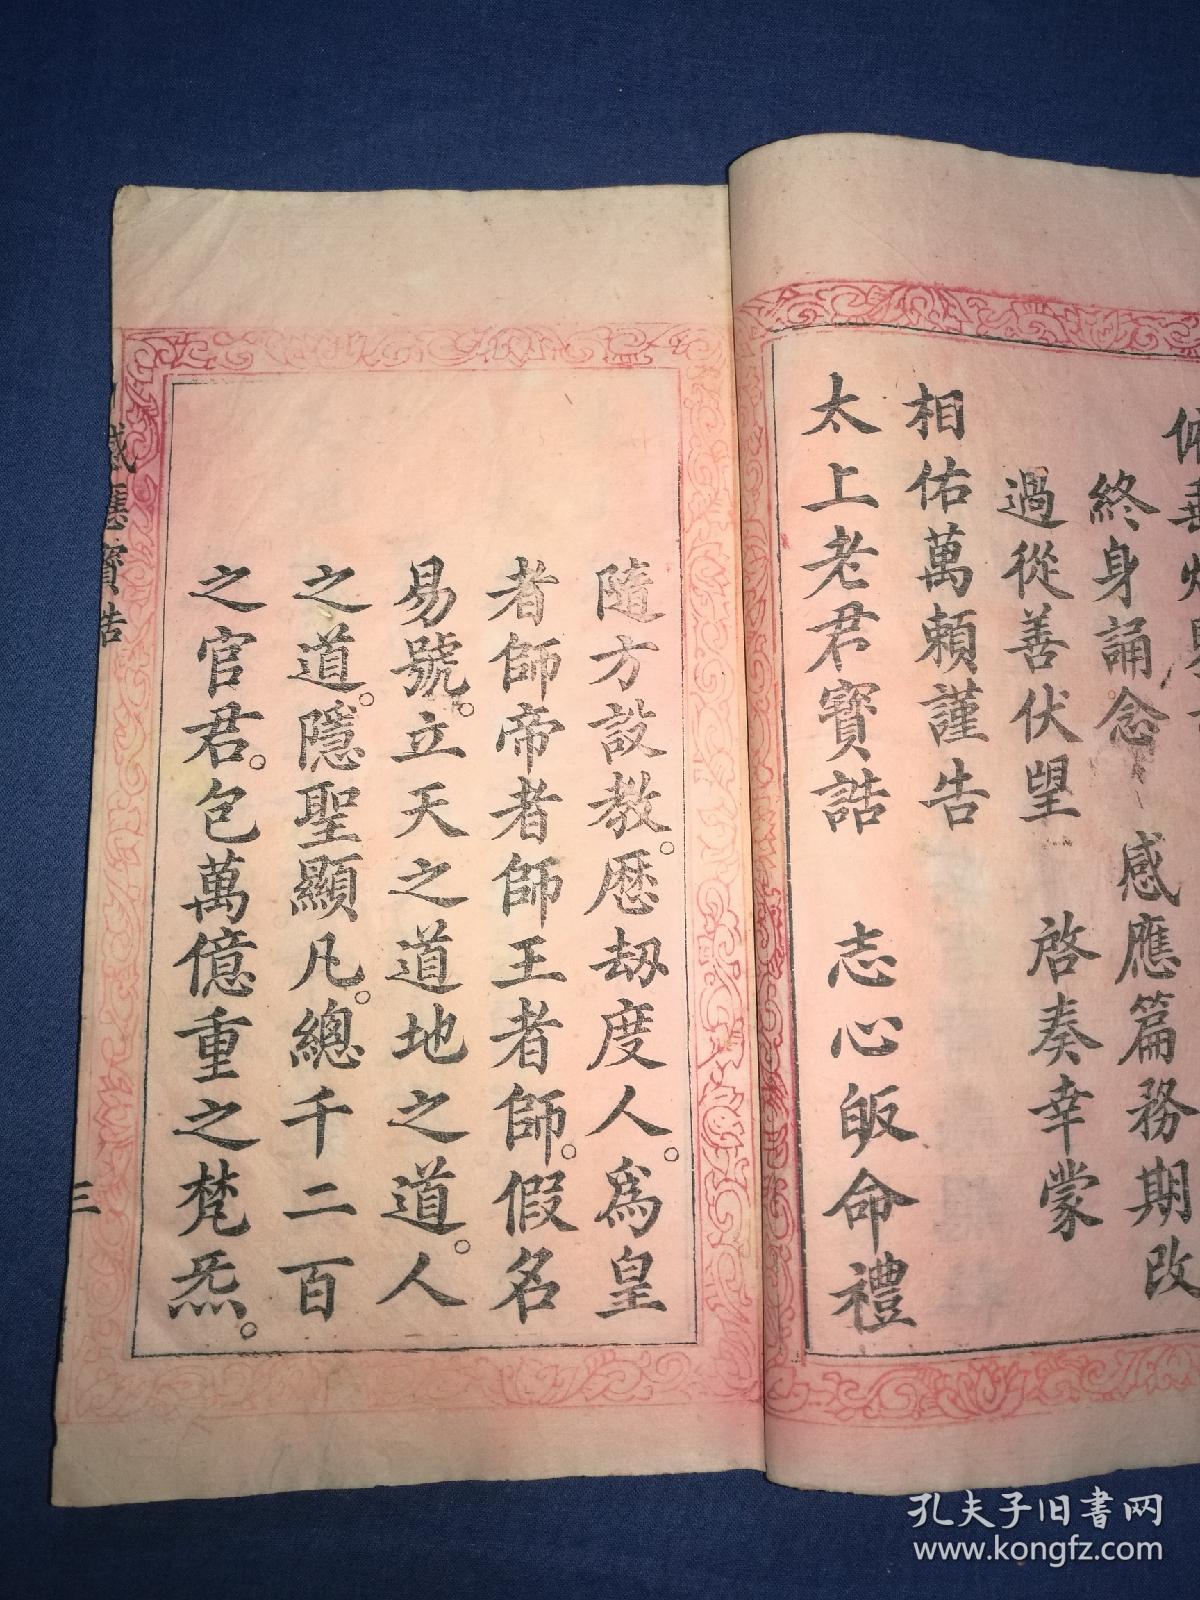 終身誦念　感應篇務期改
過從善伏望　啓奏幸蒙
相佑萬賴謹告
太上老君寳誥　志心皈命禮
隨方設教。歷劫度人。爲皇
者師帝者師王者師。假名
易號。立天之道地之道。人
之道。隱聖顯凡。總千二百
之官君。包萬億重之梵炁。
感應寳誥
三
孔夫子旧书网
www.kongfz.com